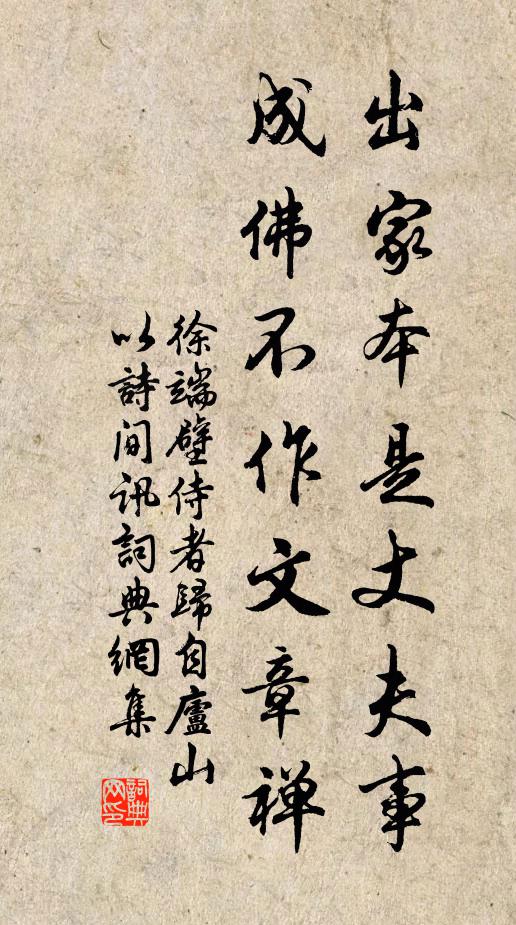 出家本是丈夫事
成佛不作文章禅
徐端璧侍者歸自廬山
以詩間訊詞典網集
詞典
网印